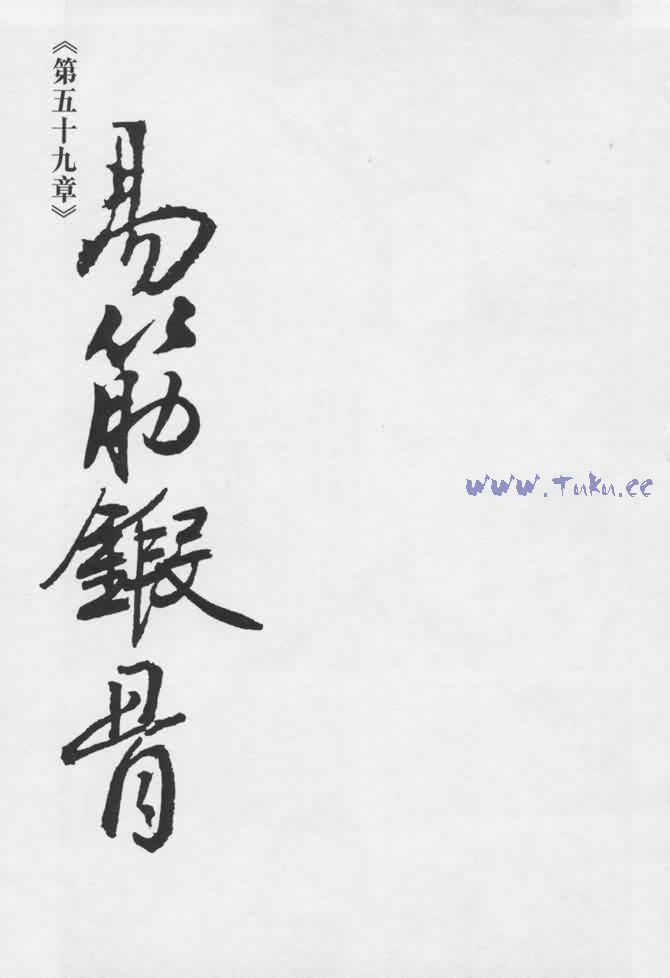 《第五十九章》
易筋鍛骨
www.Tuku.cc